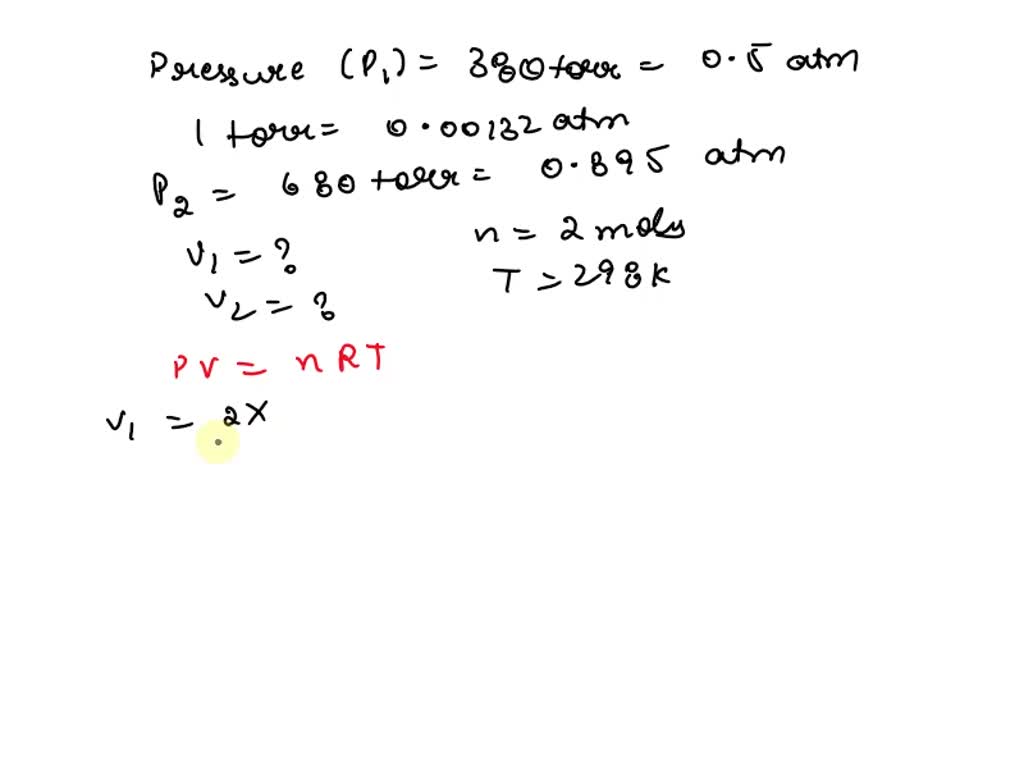 Pressure (P₁) = 380 torr = 0.5 atm
1 torr = 0.00132 atm
P₂ = 680 torr = 0.895 atm
V₁ = ? n = 2 mols
V₂ = ? T = 298 K
PV = nRT
V₁ = 2X